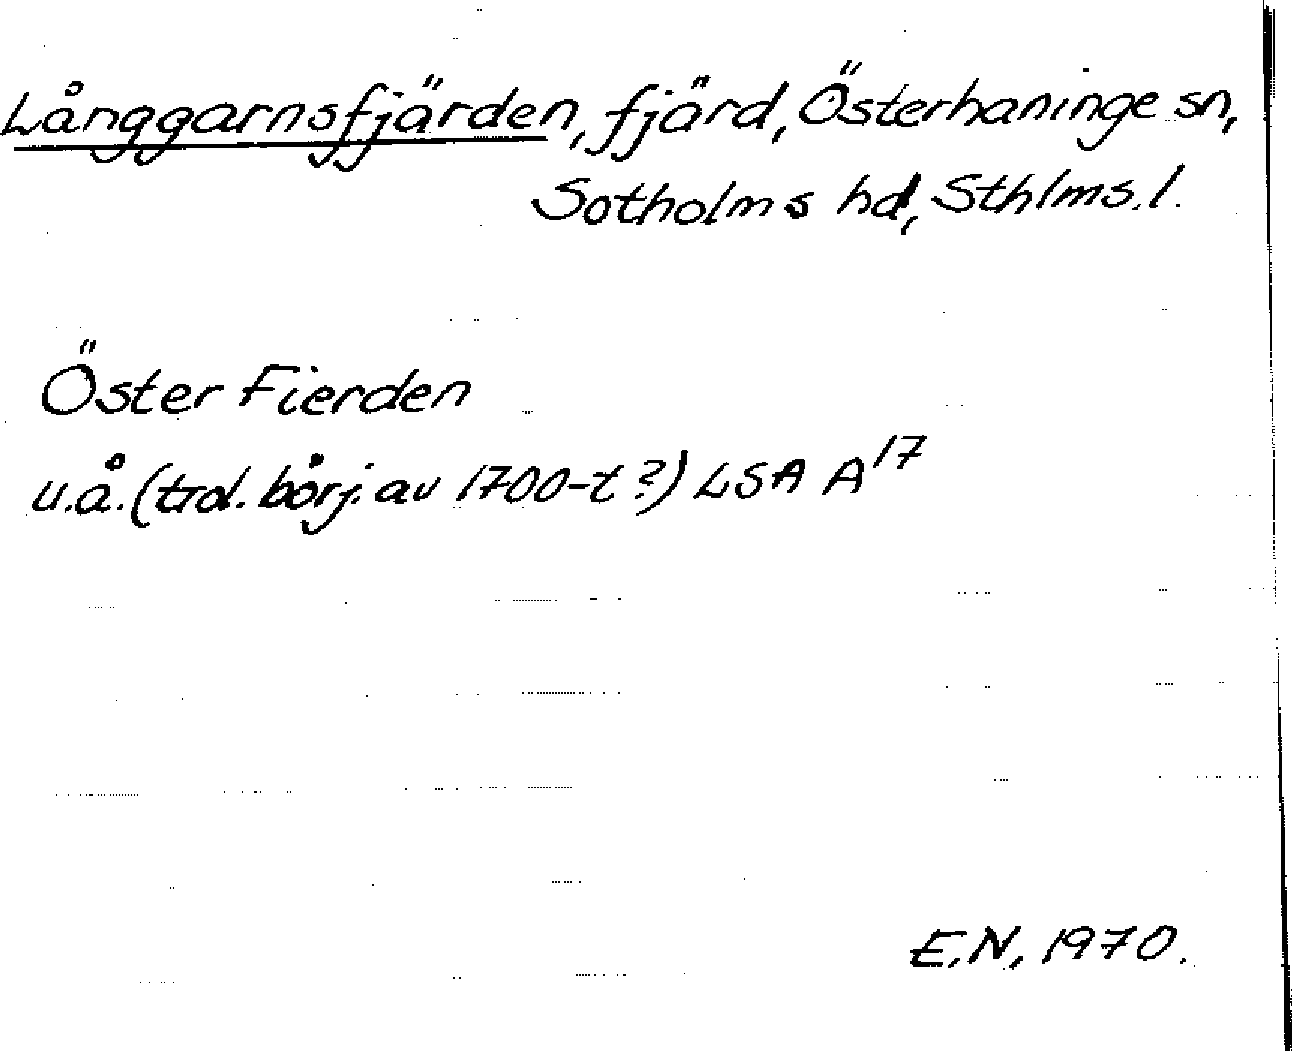 Långgarnsfjärden, fjärd, Österhaninge sn,
Sotholms hd, Sthlms. l.
Öster Fierden
u.å. (trol. börj. av 1700-t ?) LSA A 17
E.N, 1970.